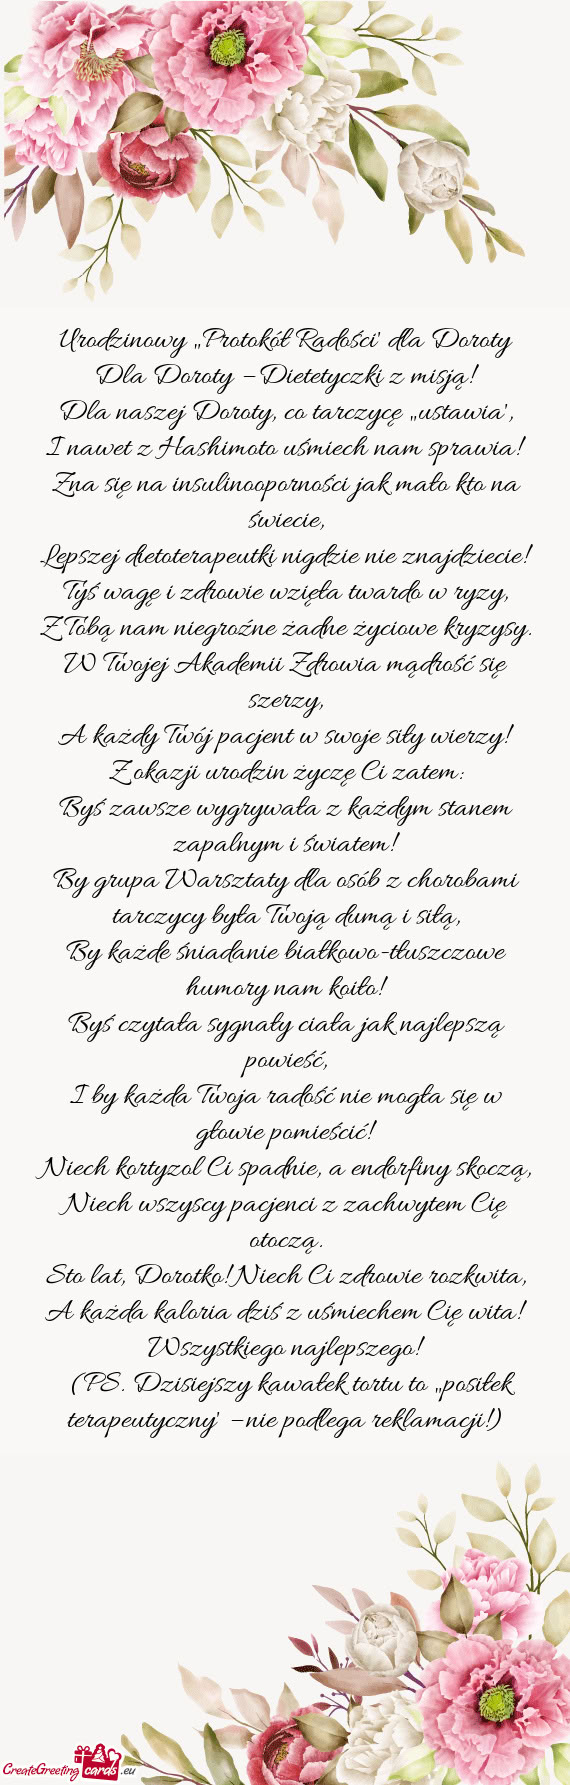 Urodzinowy „Protokół Radości” dla Doroty
Dla Doroty – Dietetyczki z misją!
Dla naszej Doroty, co tarczycę „ustawia”,
I nawet z Hashimoto uśmiech nam sprawia!
Zna się na insulinooporności jak mało kto na
świecie,
Lepszej dietoterapeutki nigdzie nie znajdziecie!
Tyś wagę i zdrowie wzięła twardo w ryzy,
Z Tobą nam niegroźne żadne życiowe kryzysy.
W Twojej Akademii Zdrowia mądrość się
szerzy,
A każdy Twój pacjent w swoje siły wierzy!
Z okazji urodzin życzę Ci zatem:
Byś zawsze wygrywała z każdym stanem
zapalnym i światem!
By grupa Warsztaty dla osób z chorobami
tarczycy była Twoją dumą i siłą,
By każde śniadanie białkowo-tłuszczowe
humory nam koiło!
Byś czytała sygnały ciała jak najlepszą
powieść,
I by każda Twoja radość nie mogła się w
głowie pomieścić!
Niech kortyzol Ci spadnie, a endorfiny skoczą,
Niech wszyscy pacjenci z zachwytem Cię
otoczą.
Sto lat, Dorotko! Niech Ci zdrowie rozkwita,
A każda kaloria dziś z uśmiechem Cię wita!
Wszystkiego najlepszego!
(PS. Dzisiejszy kawałek tortu to „posiłek
terapeutyczny” – nie podlega reklamacji!)
CreateGreeting cards .eu